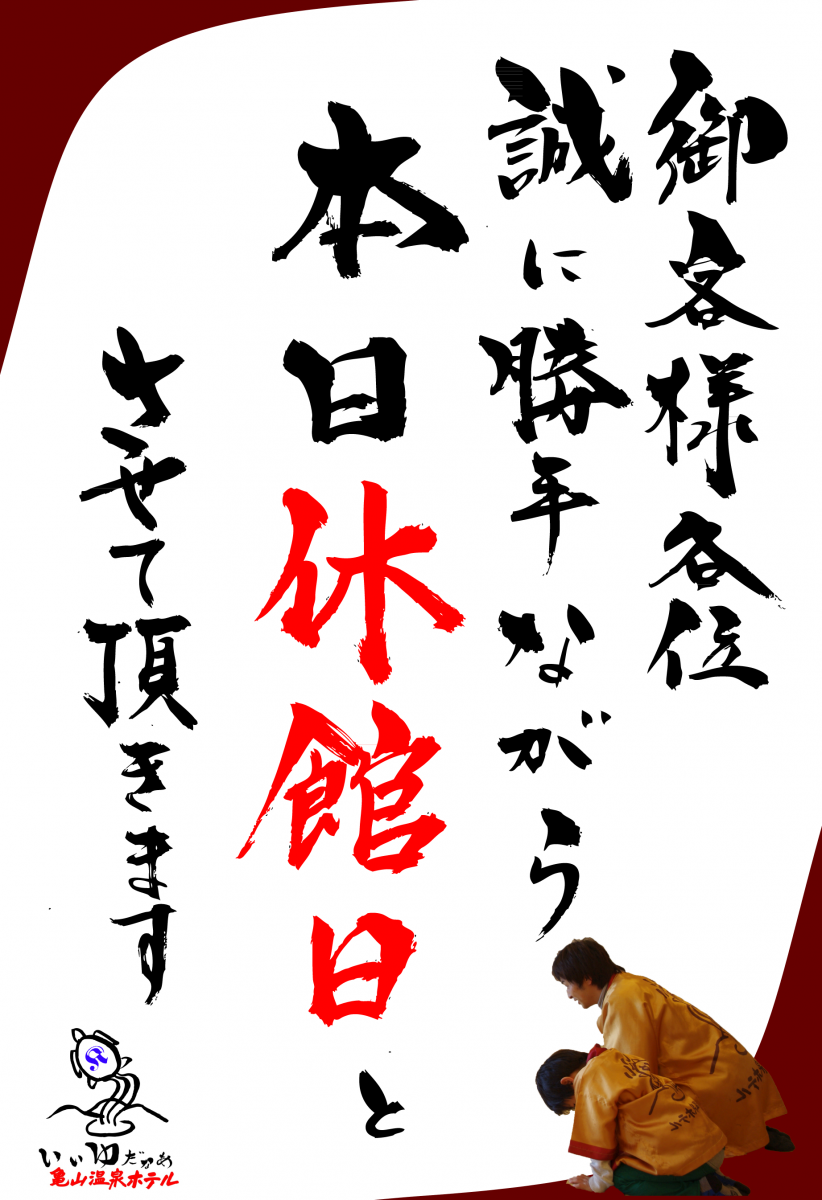 御客様各位
誠に勝手ながら
本日休館日と
させて頂きます
ゆ
いいゆだかめ
亀山温泉ホテル